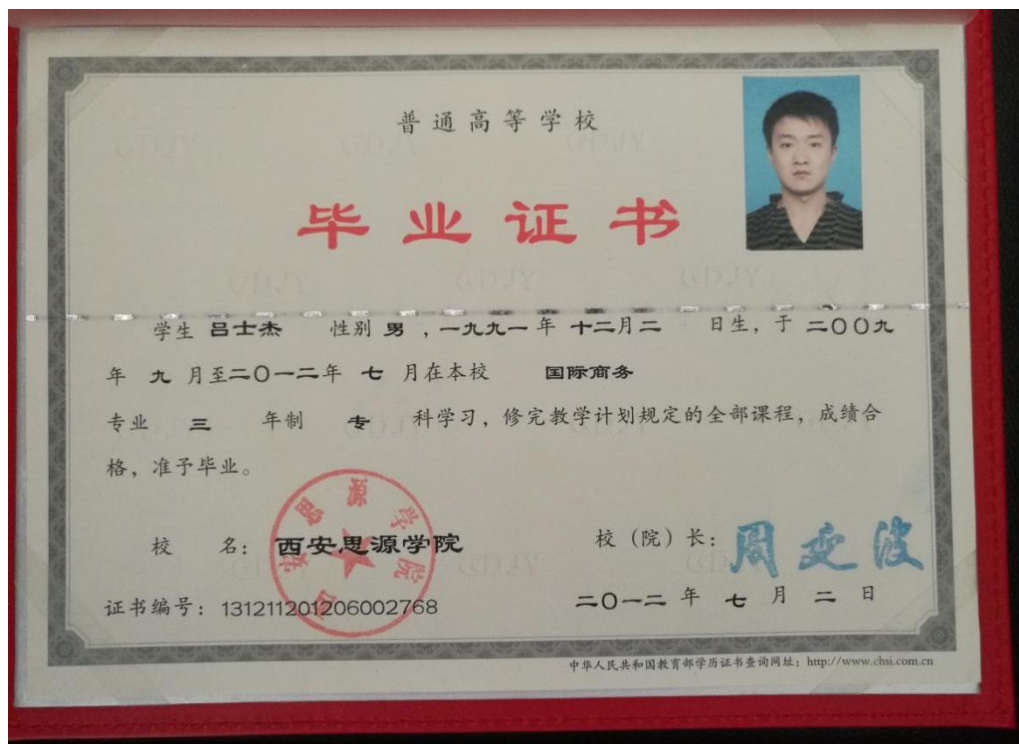 普通高等学校
毕业证书
学生 吕士杰 性别 男 ，一九九一 年 十二月二 日生，于 二〇〇九
年 九 月至二〇一二年 七 月在本校 国际商务
专业 三 年制 专 科学习，修完教学计划规定的全部课程，成绩合
格，准予毕业。
校 名： 西安思源学院
校（院）长：
证书编号：131211201206002768
二〇一二 年 七 月 二 日
西安思源学院
中华人民共和国教育部学历证书查询网址：http://www.chsi.com.cn